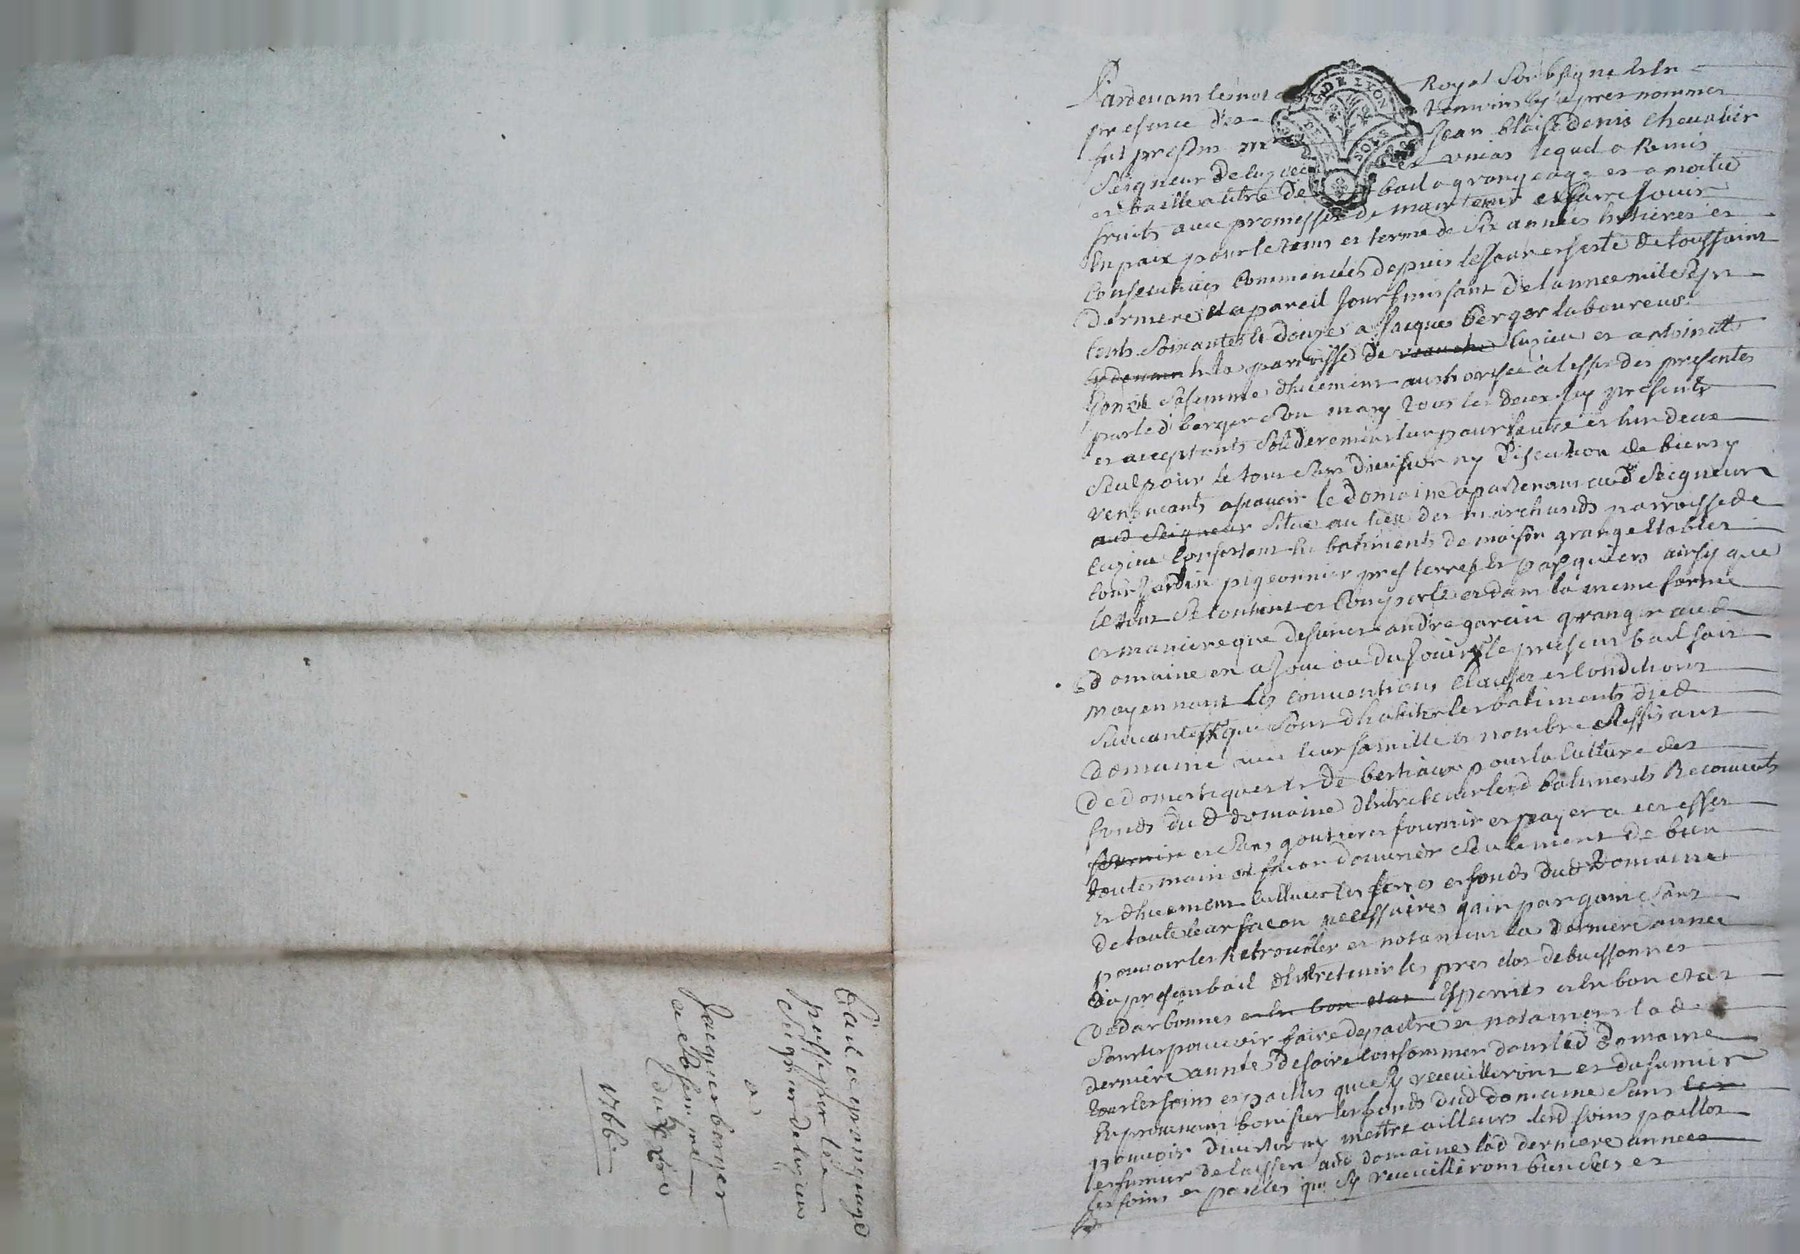 Pardevant le not Royal Soubsigné et en
presence des temoins cy apres nommes
fut present mre Jean blaise denis chevalier
Seigneur de Cuzieu et unias lequel a Remis
et baille a titre de bail a grangeage et a moitié
fruits avec promesse de maintenir et faire Jouir
En paix pour le tems et terme de Six années entieres et
Consecutives Commencées depuis le Jour et feste de toussaint
derniere et a pareil Jour finissant de lannee mil Sept
cents Soixante et douze a Jacques berger laboureur
de la parroisse de cuzieu et antoinette
Sa femme dhuement authorisée a leffet des presentes
par led berger Son mary tous les deux Icy presents
et acceptants Solidairement lun pour lautre et lun deux
Seul pour le tout Sans division ny discution de biens y
renoncants ascavoir le domaine apartenant aud Seigneur
aud Seigneur Situé au lieu des marchands parroisse de
cuzieu Consistant En batiments de maison grange Etables
cour Jardin pigeonnier pres terres Et pasquiers ainsy que
le tout Se contient et Comporte et dans la meme forme
et maniere que defunct andré garein granger aud
domaine en a Joui ou du Jouir le present bail fait
moyennant les conventions clauses et conditions
Suivantes que Sont dhabiter les batiments dud
domaine avec leur famille et nombre Suffisant
de domestiques et de bestiaux pour la culture des
fonds dud domaine dentretenir lesd batiments Recouverts
et Sans goutieres fournir et payer a cet effet
toutes main et facon douvrier Seulement de bien
et dhuement cultiver les terres et fonds dud Domaine
de toute leur facon necessaires gain par gain Sans
pouvoir les Retroubler et notament la derniere année
du present bail dEntretenir les pres clos de buissonnes
et en bon etat
Sans y pouvoir faire depaitre et notament lad
derniere année de faire Consommer dans led domaine
tous les foins et pailles que Sy recueilleront et du fumier
En provenant bonifier les fonds dud domaine Sans
pouvoir divertir ny mettre ailleurs lesd foins pailles
et fumier de laisser aud domaine lad derniere année
les foins et pailles qui Sy recueilliront bien Secs et
Bail a grangeage
passé par le
Seigneur de Cuzieu
a
Jacques berger
et a Sa femme
1766